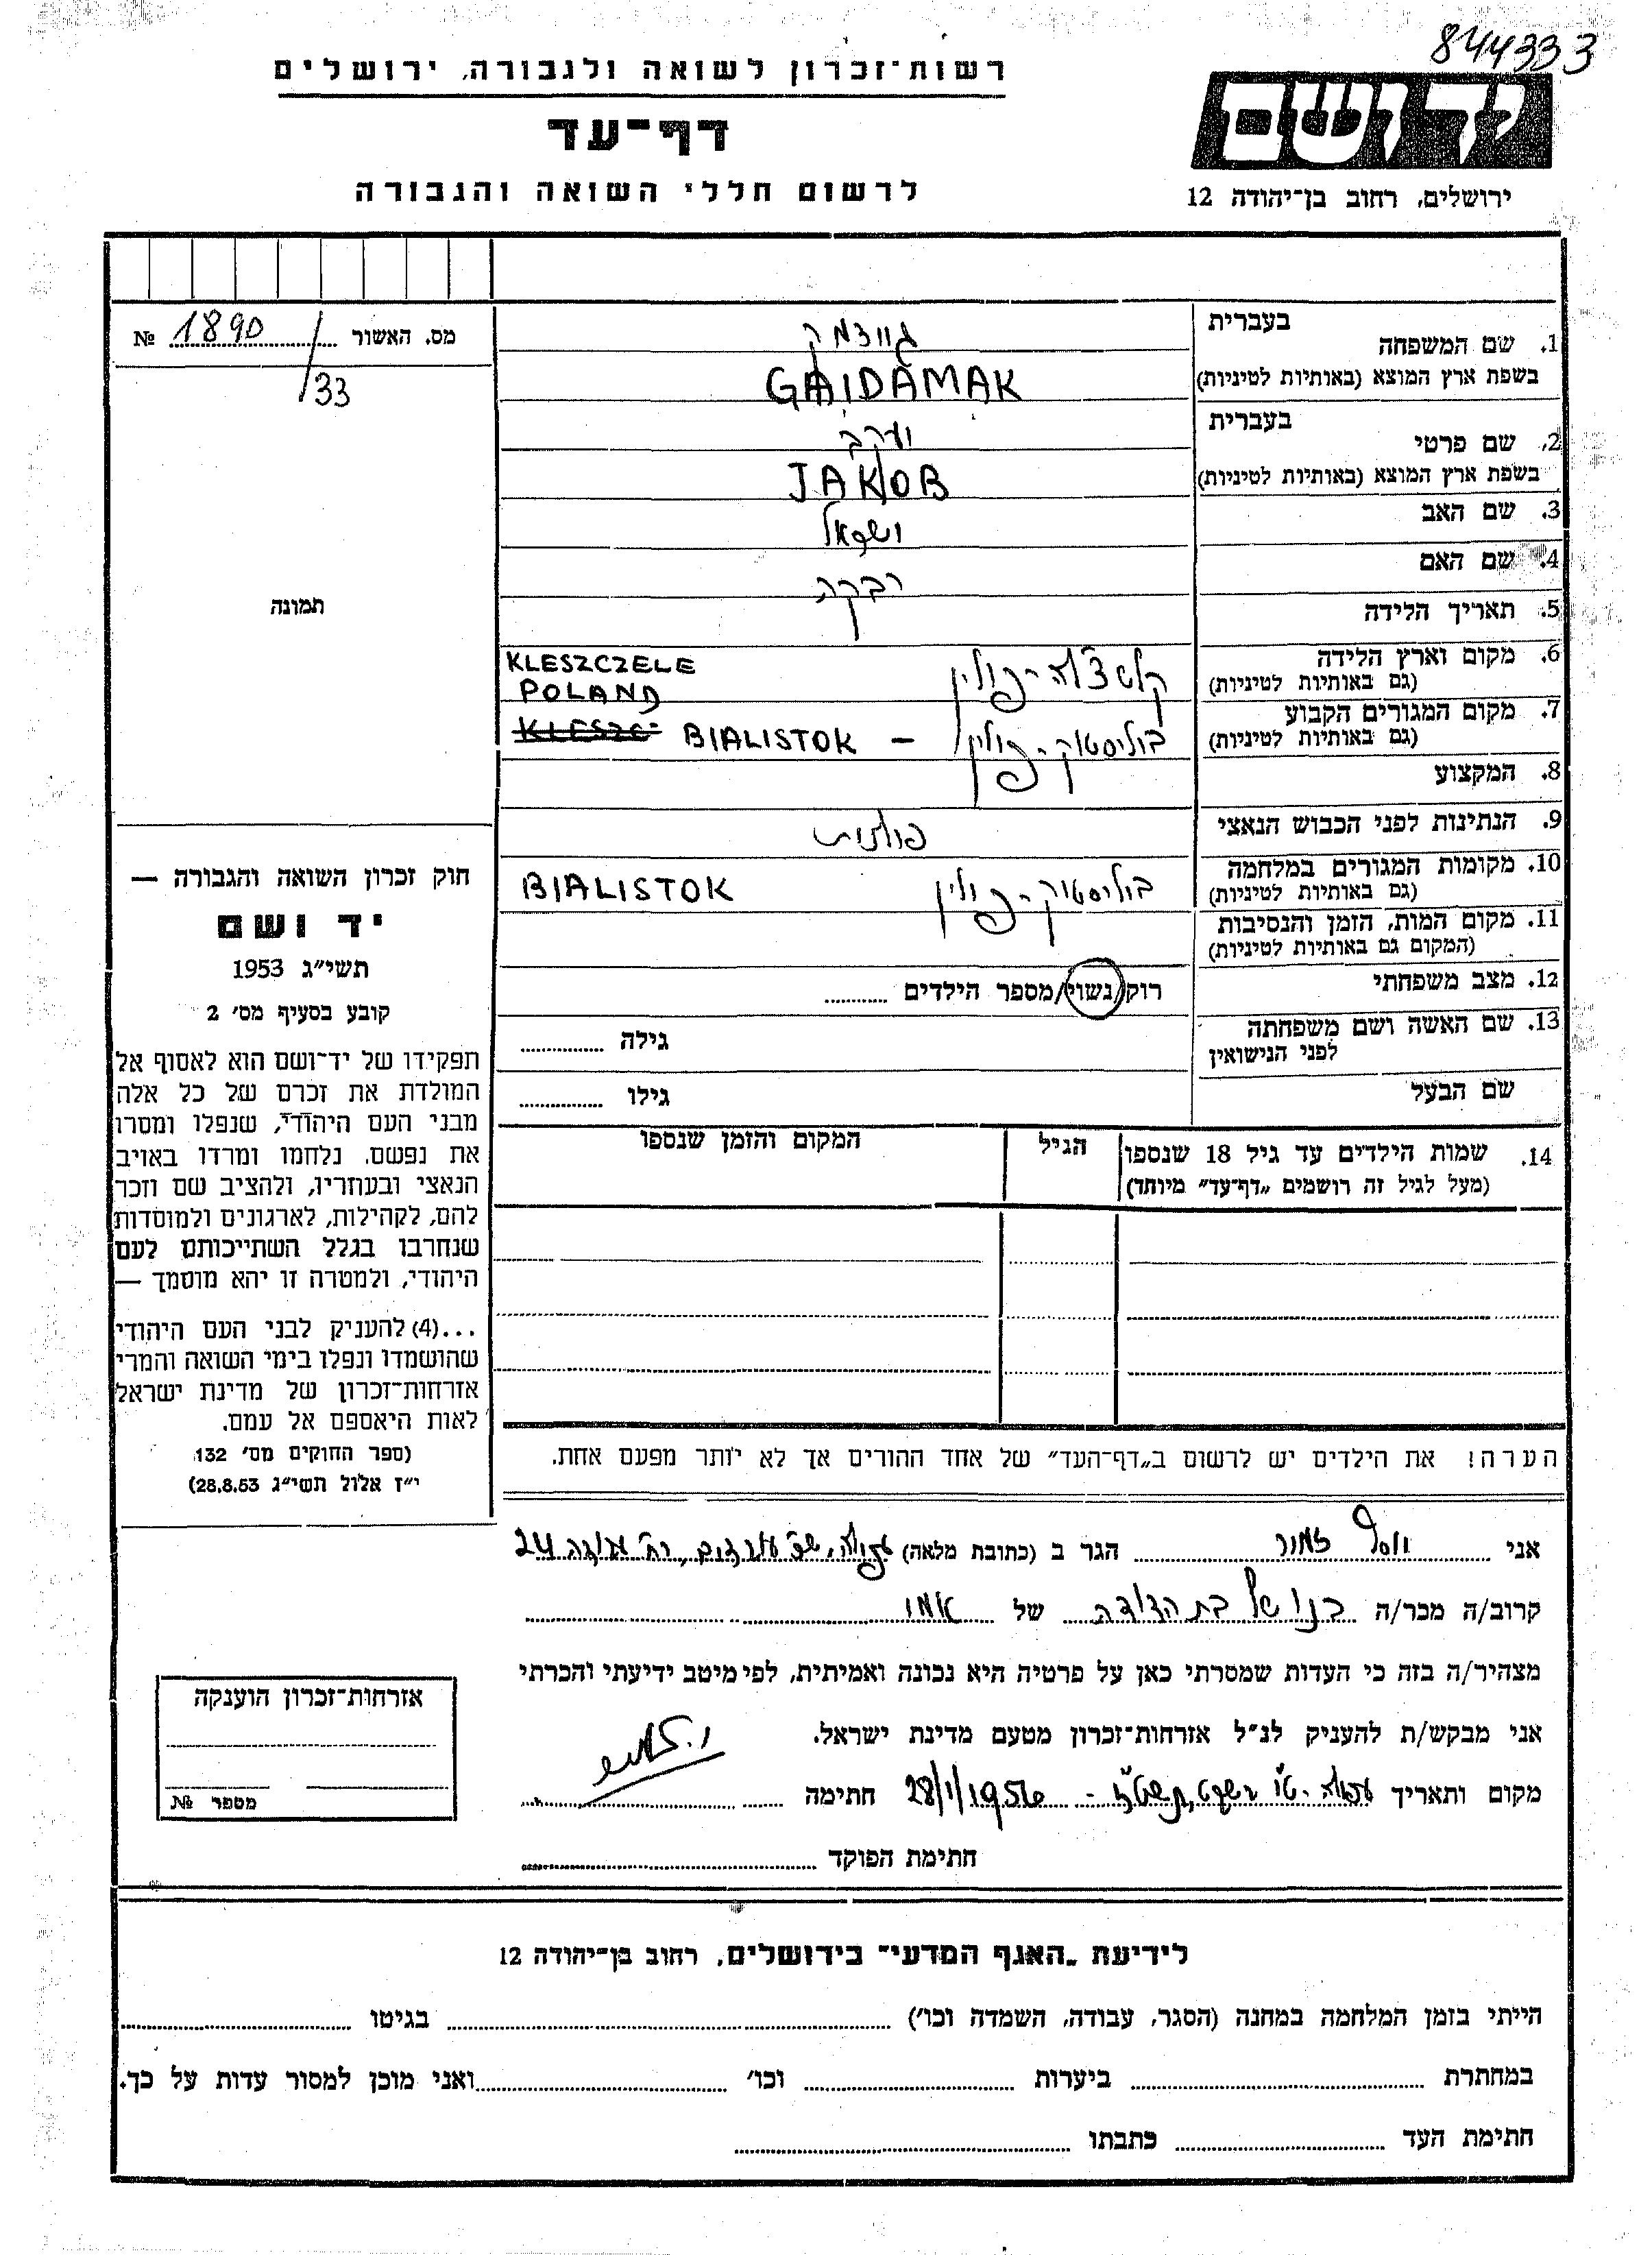 844333
רשות־זכרון לשואה ולגבורה, ירושלים
דף־עד
לרשום חללי השואה והגבורה
יד ושם
ירושלים, רחוב בן־יהודה 12
מס. האשור 1890 №
/33
תמונה
1. שם המשפחה בעברית גיידמק
בשפת ארץ המוצא (באותיות לטיניות) GAIDAMAK
2. שם פרטי בעברית יעקב
בשפת ארץ המוצא (באותיות לטיניות) JAKOB
3. שם האב ישראל
4. שם האם רבקה
5. תאריך הלידה
6. מקום וארץ הלידה קלשצ'לה - פולין KLESZCZELE
(גם באותיות לטיניות) POLAND
7. מקום המגורים הקבוע ביליסטוק - פולין – BIALISTOK KLESZC-
(גם באותיות לטיניות)
8. המקצוע
9. הנתינות לפני הכבוש הנאצי פולנית
10. מקומות המגורים במלחמה ביליסטוק - פולין BIALISTOK
(גם באותיות לטיניות)
11. מקום המות, הזמן והנסיבות
(המקום גם באותיות לטיניות)
12. מצב משפחתי רוק/נשוי/מספר הילדים
13. שם האשה ושם משפחתה גילה
לפני הנישואין
שם הבעל גילו
14. שמות הילדים עד גיל 18 שנספו הגיל המקום והזמן שנספו
(מעל לגיל זה רושמים „דף־עד” מיוחד)
חוק זכרון השואה והגבורה —
יד ושם
תשי״ג 1953
קובע בסעיף מס׳ 2
תפקידו של יד־ושם הוא לאסוף אל
המולדת את זכרם של כל אלה
מבני העם היהודי, שנפלו ומסרו
את נפשם, נלחמו ומרדו באויב
הנאצי ובעוזריו, ולהציב שם וזכר
להם, לקהילות, לארגונים ולמוסדות
שנחרבו בגלל השתייכותם לעם
היהודי, ולמטרה זו יהא מוסמך —
...(4) להעניק לבני העם היהודי
שהושמדו ונפלו בימי השואה והמרי
אזרחות־זכרון של מדינת ישראל
לאות היאספם אל עמם.
(ספר החוקים מס׳ 132
י״ז אלול תשי״ג 28.8.53)
הערה! את הילדים יש לרשום ב„דף־העד” של אחד ההורים אך לא יותר מפעם אחת.
אני יוסף הגר ב (כתובת מלאה) עפולה, 24
קרוב/ה מכר/ה בנו של בת הדודה של אמו
מצהיר/ה בזה כי העדות שמסרתי כאן על פרטיה היא נכונה ואמיתית, לפי מיטב ידיעתי והכרתי
אני מבקש/ת להעניק לנ״ל אזרחות־זכרון מטעם מדינת ישראל.
מקום ותאריך עפולה - ט"ו בשבט, תשט"ז - 28/1/1956 חתימה
חתימת הפוקד
אזרחות־זכרון הוענקה
מספר №
לידיעת „האגף המדעי” בירושלים, רחוב בן־יהודה 12
הייתי בזמן המלחמה במחנה (הסגר, עבודה, השמדה וכו׳) בגיטו
במחתרת ביערות וכו׳ ואני מוכן למסור עדות על כך.
חתימת העד כתבתו